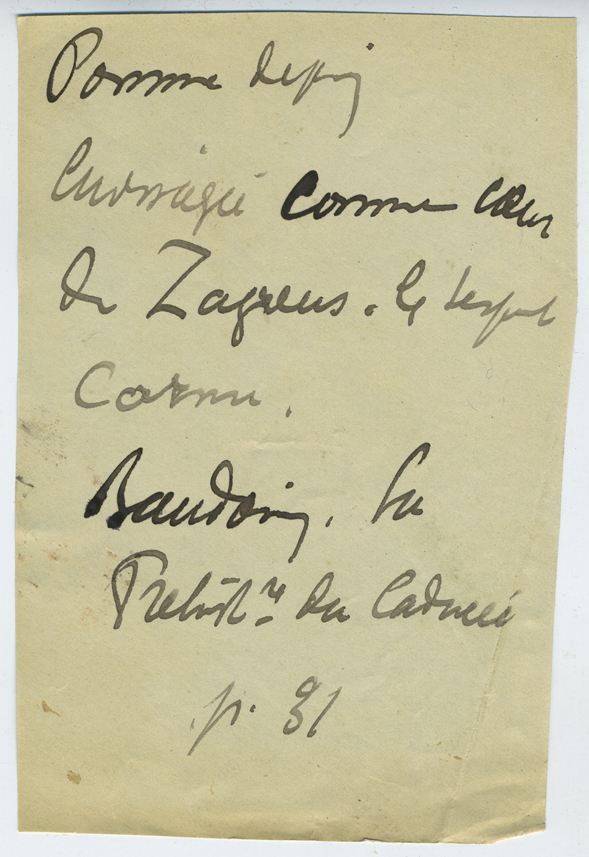 Pomme de pin
envisagée comme cœur
de Zagreus. le serpent
Cornu.
Baudouin, La
Préhistre du Caducée
p. 31